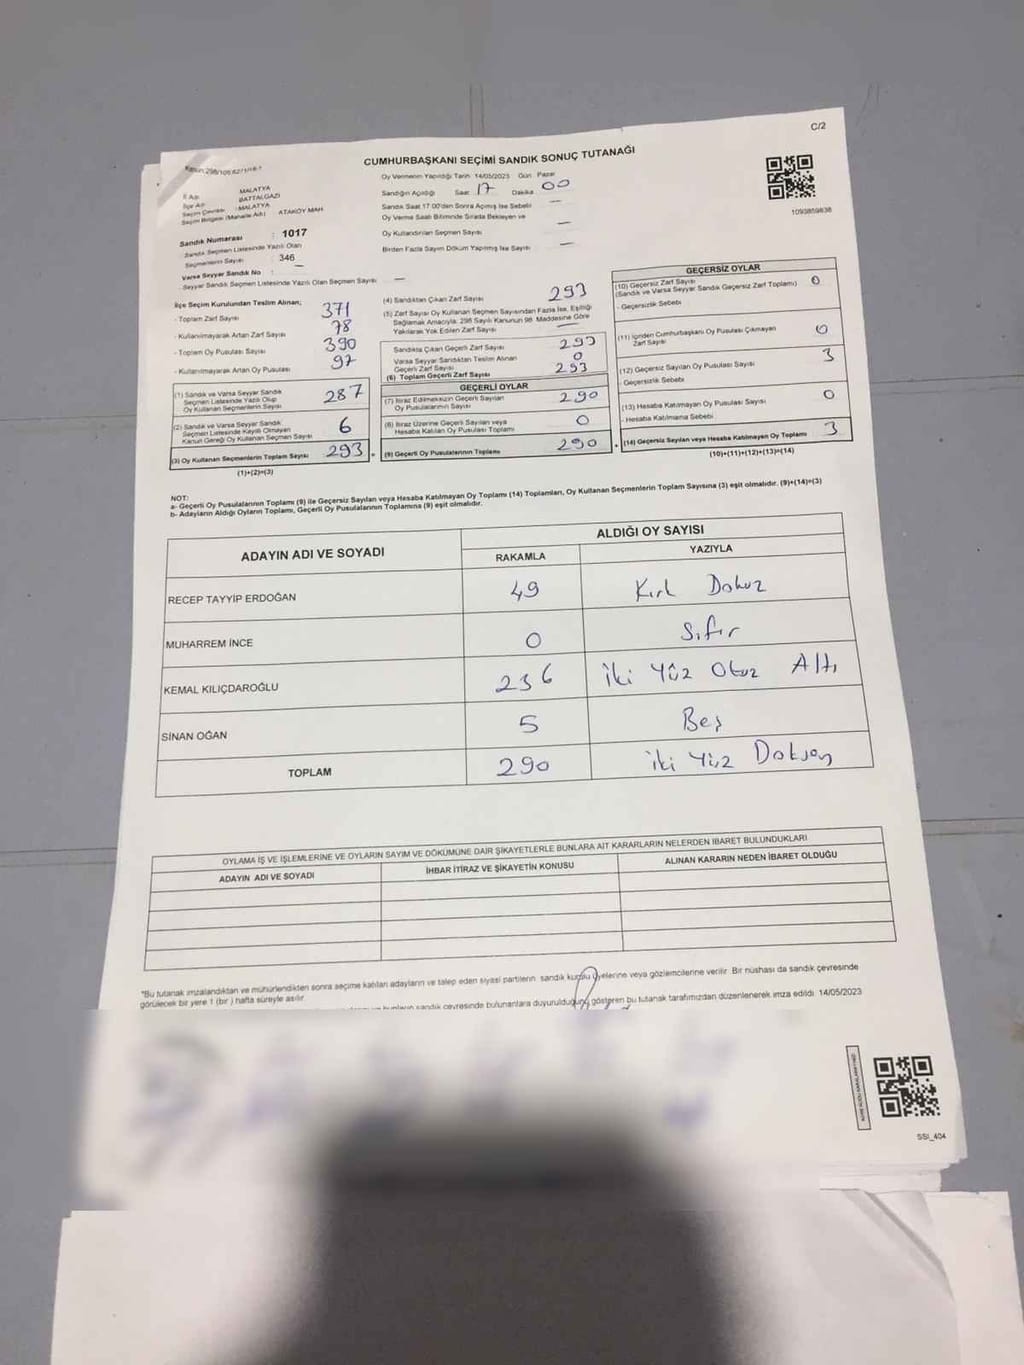 C/2
CUMHURBAŞKANI SEÇİMİ SANDIK SONUÇ TUTANAĞI
Oy Vermenin Yapıldığı Tarih 14/05/2023 Gün Pazar
1093859838
İl Adı MALATYA
İlçe Adı BATTALGAZİ
Seçim Çevresi : MALATYA
Seçim Bölgesi (Mahalle Adı) : ATAKÖY MAH.
Sandığın Açıldığı Saat 17 Dakika 00
Sandık Saat 17:00'den Sonra Açılmış İse Sebebi —
Oy Verme Saati Bitiminde Sırada Bekleyen ve
Oy Kullandırılan Seçmen Sayısı —
Birden Fazla Sayım Döküm Yapılmış İse Sayısı —
Sandık Numarası : 1017
Sandık Seçmen Listesinde Yazılı Olan
Seçmenlerin Sayısı : 346
Varsa Seyyar Sandık No : —
Seyyar Sandık Seçmen Listesinde Yazılı Olan Seçmen Sayısı —
İlçe Seçim Kurulundan Teslim Alınan;
- Toplam Zarf Sayısı 371
- Kullanılmayarak Artan Zarf Sayısı 78
- Toplam Oy Pusulası Sayısı 390
- Kullanılmayarak Artan Oy Pusulası 97
(1) Sandık ve Varsa Seyyar Sandık
Seçmen Listesinde Yazılı Olup
Oy Kullanan Seçmenlerin Sayısı 287
(2) Sandık ve Varsa Seyyar Sandık
Seçmen Listesinde Kayıtlı Olmayan
Kanun Gereği Oy Kullanan Seçmen Sayısı 6
(3) Oy Kullanan Seçmenlerin Toplam Sayısı 293
(1)+(2)=(3)
(4) Sandıktan Çıkan Zarf Sayısı 293
(5) Zarf Sayısı Oy Kullanan Seçmen Sayısından Fazla İse, Eşitliği
Sağlamak Amacıyla; 298 Sayılı Kanunun 98. Maddesine Göre
Yakılarak Yok Edilen Zarf Sayısı —
Sandıkta Çıkan Geçerli Zarf Sayısı 293
Varsa Seyyar Sandıktan Teslim Alınan
Geçerli Zarf Sayısı 0
(6) Toplam Geçerli Zarf Sayısı 293
GEÇERLİ OYLAR
(7) İtiraz Edilmeksizin Geçerli Sayılan
Oy Pusulalarının Sayısı 290
(8) İtiraz Üzerine Geçerli Sayılan veya
Hesaba Katılan Oy Pusulası Toplamı 0
(9) Geçerli Oy Pusulalarının Toplamı 290
GEÇERSİZ OYLAR
(10) Geçersiz Zarf Sayısı
(Sandık ve Varsa Seyyar Sandık Geçersiz Zarf Toplamı) 0
- Geçersizlik Sebebi
(11) İçinden Cumhurbaşkanı Oy Pusulası Çıkmayan
Zarf Sayısı 0
(12) Geçersiz Sayılan Oy Pusulası Sayısı 3
- Geçersizlik Sebebi
(13) Hesaba Katılmayan Oy Pusulası Sayısı 0
- Hesaba Katılmama Sebebi
(14) Geçersiz Sayılan veya Hesaba Katılmayan Oy Toplamı 3
(10)+(11)+(12)+(13)=(14)
NOT:
a- Geçerli Oy Pusulalarının Toplamı (9) ile Geçersiz Sayılan veya Hesaba Katılmayan Oy Toplamı (14) Toplamları, Oy Kullanan Seçmenlerin Toplam Sayısına (3) eşit olmalıdır. (9)+(14)=(3)
b- Adayların Aldığı Oyların Toplamı, Geçerli Oy Pusulalarının Toplamına (9) eşit olmalıdır.
ADAYIN ADI VE SOYADI ALDIĞI OY SAYISI
RAKAMLA YAZIYLA
RECEP TAYYİP ERDOĞAN 49 Kırk Dokuz
MUHARREM İNCE 0 Sıfır
KEMAL KILIÇDAROĞLU 236 İki Yüz Otuz Altı
SİNAN OĞAN 5 Beş
TOPLAM 290 İki Yüz Doksan
OYLAMA İŞ VE İŞLEMLERİNE VE OYLARIN SAYIM VE DÖKÜMÜNE DAİR ŞİKAYETLERLE BUNLARA AİT KARARLARIN NELERDEN İBARET BULUNDUKLARI
ADAYIN ADI VE SOYADI İHBAR İTİRAZ VE ŞİKAYETİN KONUSU ALINAN KARARIN NEDEN İBARET OLDUĞU
*Bu tutanak imzalandıktan ve mühürlendikten sonra seçime katılan adayların ve talep eden siyasi partilerin sandık kurulu üyelerine veya gözlemcilerine verilir. Bir nüshası da sandık çevresinde
görülecek bir yere 1 (bir) hafta süreyle asılır.
bunların sandık çevresinde bulunanlara duyurulduğunu gösteren bu tutanak tarafımızdan düzenlenerek imza edildi. 14/05/2023
SSI_404